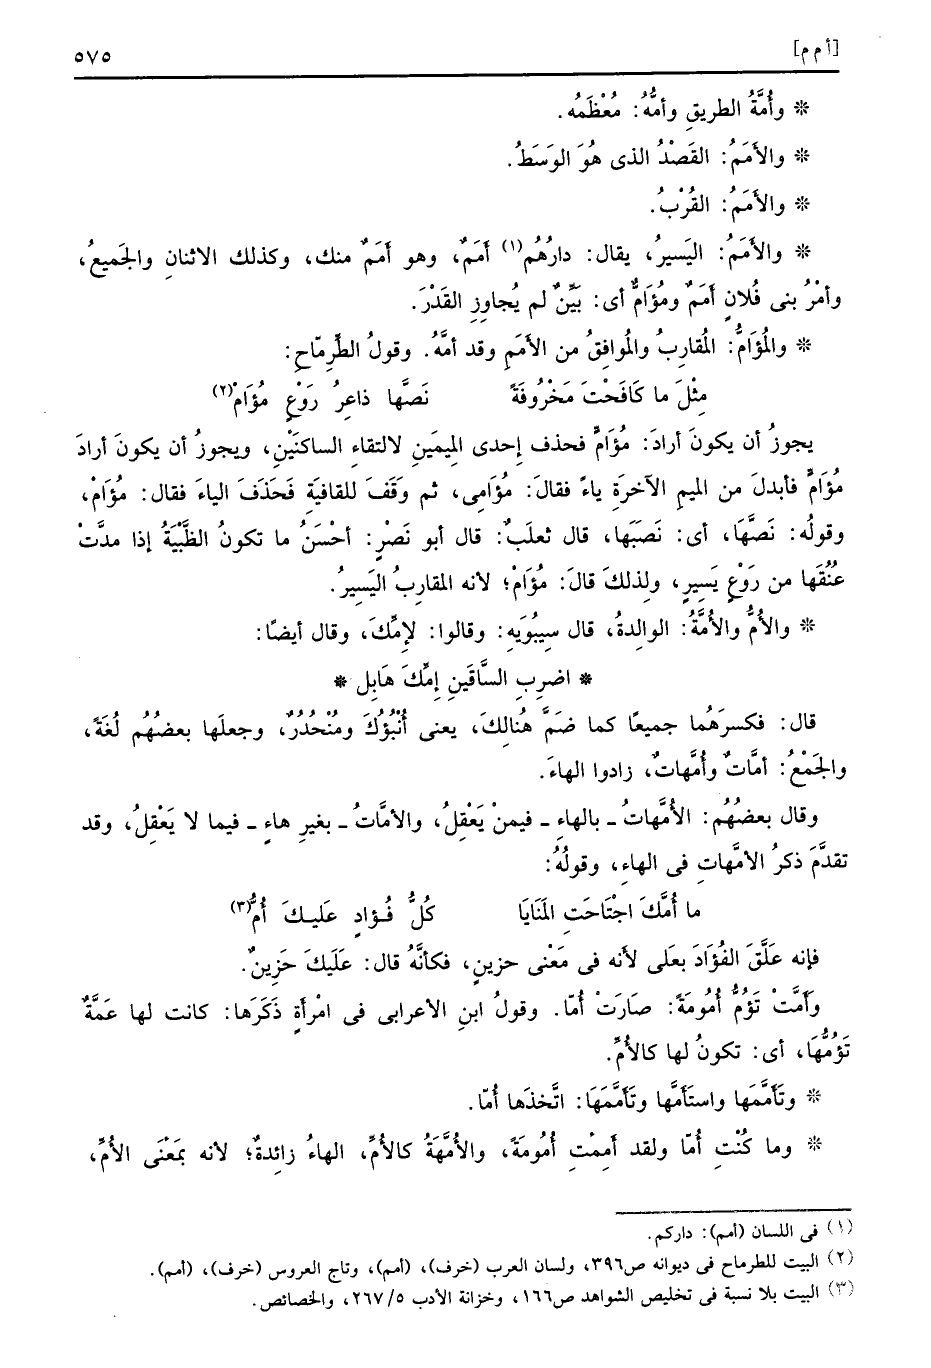 [أ م م] ٥٧٥
* وأُمَّةُ الطريقِ وأمُّهُ: مُعْظَمُه.
* والأَمَمُ: القَصْدُ الذى هُوَ الوَسَطُ.
* والأَمَمُ: القُرْبُ.
* والأَمَمُ: اليَسيرُ، يقال: دارُهُم(١) أَمَمٌ، وهو أَمَمٌ منك، وكذلك الاثنانِ والجَميعُ،
وأمْرُ بنى فُلانٍ أَمَمٌ ومُؤَامٌّ أى: بَيِّنٌ لم يُجاوِزِ القَدْرَ.
* والمُؤَامُّ: المُقارِبُ والمُوافِقُ من الأَمَمِ وقد أمَّهُ. وقولُ الطِّرِمّاحِ:
مِثْلَ ما كَافَحْتَ مَخْرُوفَةً نَصَّها ذاعِرُ رَوْعٍ مُؤَامْ(٢)
يجوزُ أن يكونَ أرادَ: مُؤَامٍّ فحذف إحدى المِيمَينِ لالتقاء الساكنَيْنِ، ويجوزُ أن يكونَ أرادَ
مُؤَامٍّ فأبدلَ من الميمِ الآخرَةِ ياءً فقالَ: مُؤَامِى، ثم وَقَفَ للقافيَةِ فَحَذَفَ الياءَ فقال: مُؤَامْ،
وقولُه: نَصَّهَا، أى: نَصَبَها، قال ثعلَبٌ: قال أبو نَصْرٍ: أحْسَنُ ما تكونُ الظَّبْيَةُ إذا مدَّتْ
عنُقَها من رَوْعٍ يَسيرٍ، ولِذلكَ قالَ: مُؤَامْ؛ لأنه المقارِبُ اليَسيرُ.
* والأُمُّ والأُمَّةُ: الوالِدةُ، قال سيبُوَيهِ: وقالوا: لإمِّكَ، وقال أيضًا:
* اضرِبِ السَّاقَينِ إمِّكَ هَابِل *
قال: فكسرَهُما جميعًا كما ضَمَّ هُنالِكَ، يعنى أُنْبُؤُكَ ومُنْحُدُرٌ، وجعلَها بعضُهُم لُغَةً،
والجَمْعُ: أمَّاتٌ وأُمَّهاتٌ، زادوا الهاءَ.
وقال بعضُهُم: الأُمَّهاتُ ـ بالهاءِ ـ فيمنْ يَعْقِلُ، والأمَّاتُ ـ بغيرِ هاءٍ ـ فيما لا يَعْقِلُ، وقد
تقدَّمَ ذكرُ الأمَّهاتِ فى الهاءِ، وقولُهُ:
ما أُمَّكَ اجْتَاحَتِ المَنَايَا كُلُّ فُؤادٍ عَلَيكَ أُمُّ(٣)
فإنه عَلَّقَ الفُؤَادَ بعَلَى لأنه فى مَعْنى حزينٍ، فكأنَّهُ قال: عَلَيكَ حَزِينٌ.
وَأَمَّتْ تَؤُمُّ أُمُومَةً: صارَتْ أُمّا. وقولُ ابنِ الأعرابى فى امْرأةٍ ذَكَرَها: كانت لها عَمَّةٌ
تَؤُمُّهَا، أى: تكونُ لها كالأُمِّ.
* وتَأَمَّمَها واستَأَمَّها وتَأَمَّمَهَا: اتَّخذَها أُمّا.
* وما كُنْتِ أُمّا ولقد أَمِمْتِ أُمُومَةً، والأُمَّهَةُ كالأُمِّ، الهاءُ زائِدةٌ؛ لأنه بمَعْنَى الأُمِّ،
(١) فى اللسان (أمم): داركم.
(٢) البيت للطرماح فى ديوانه ص٣٩٦، ولسان العرب (خرف)، (أمم)، وتاج العروس (خرف)، (أمم).
(٣) البيت بلا نسبة فى تخليص الشواهد ص١٦٦، وخزانة الأدب ٢٦٧/٥، والخصائص.